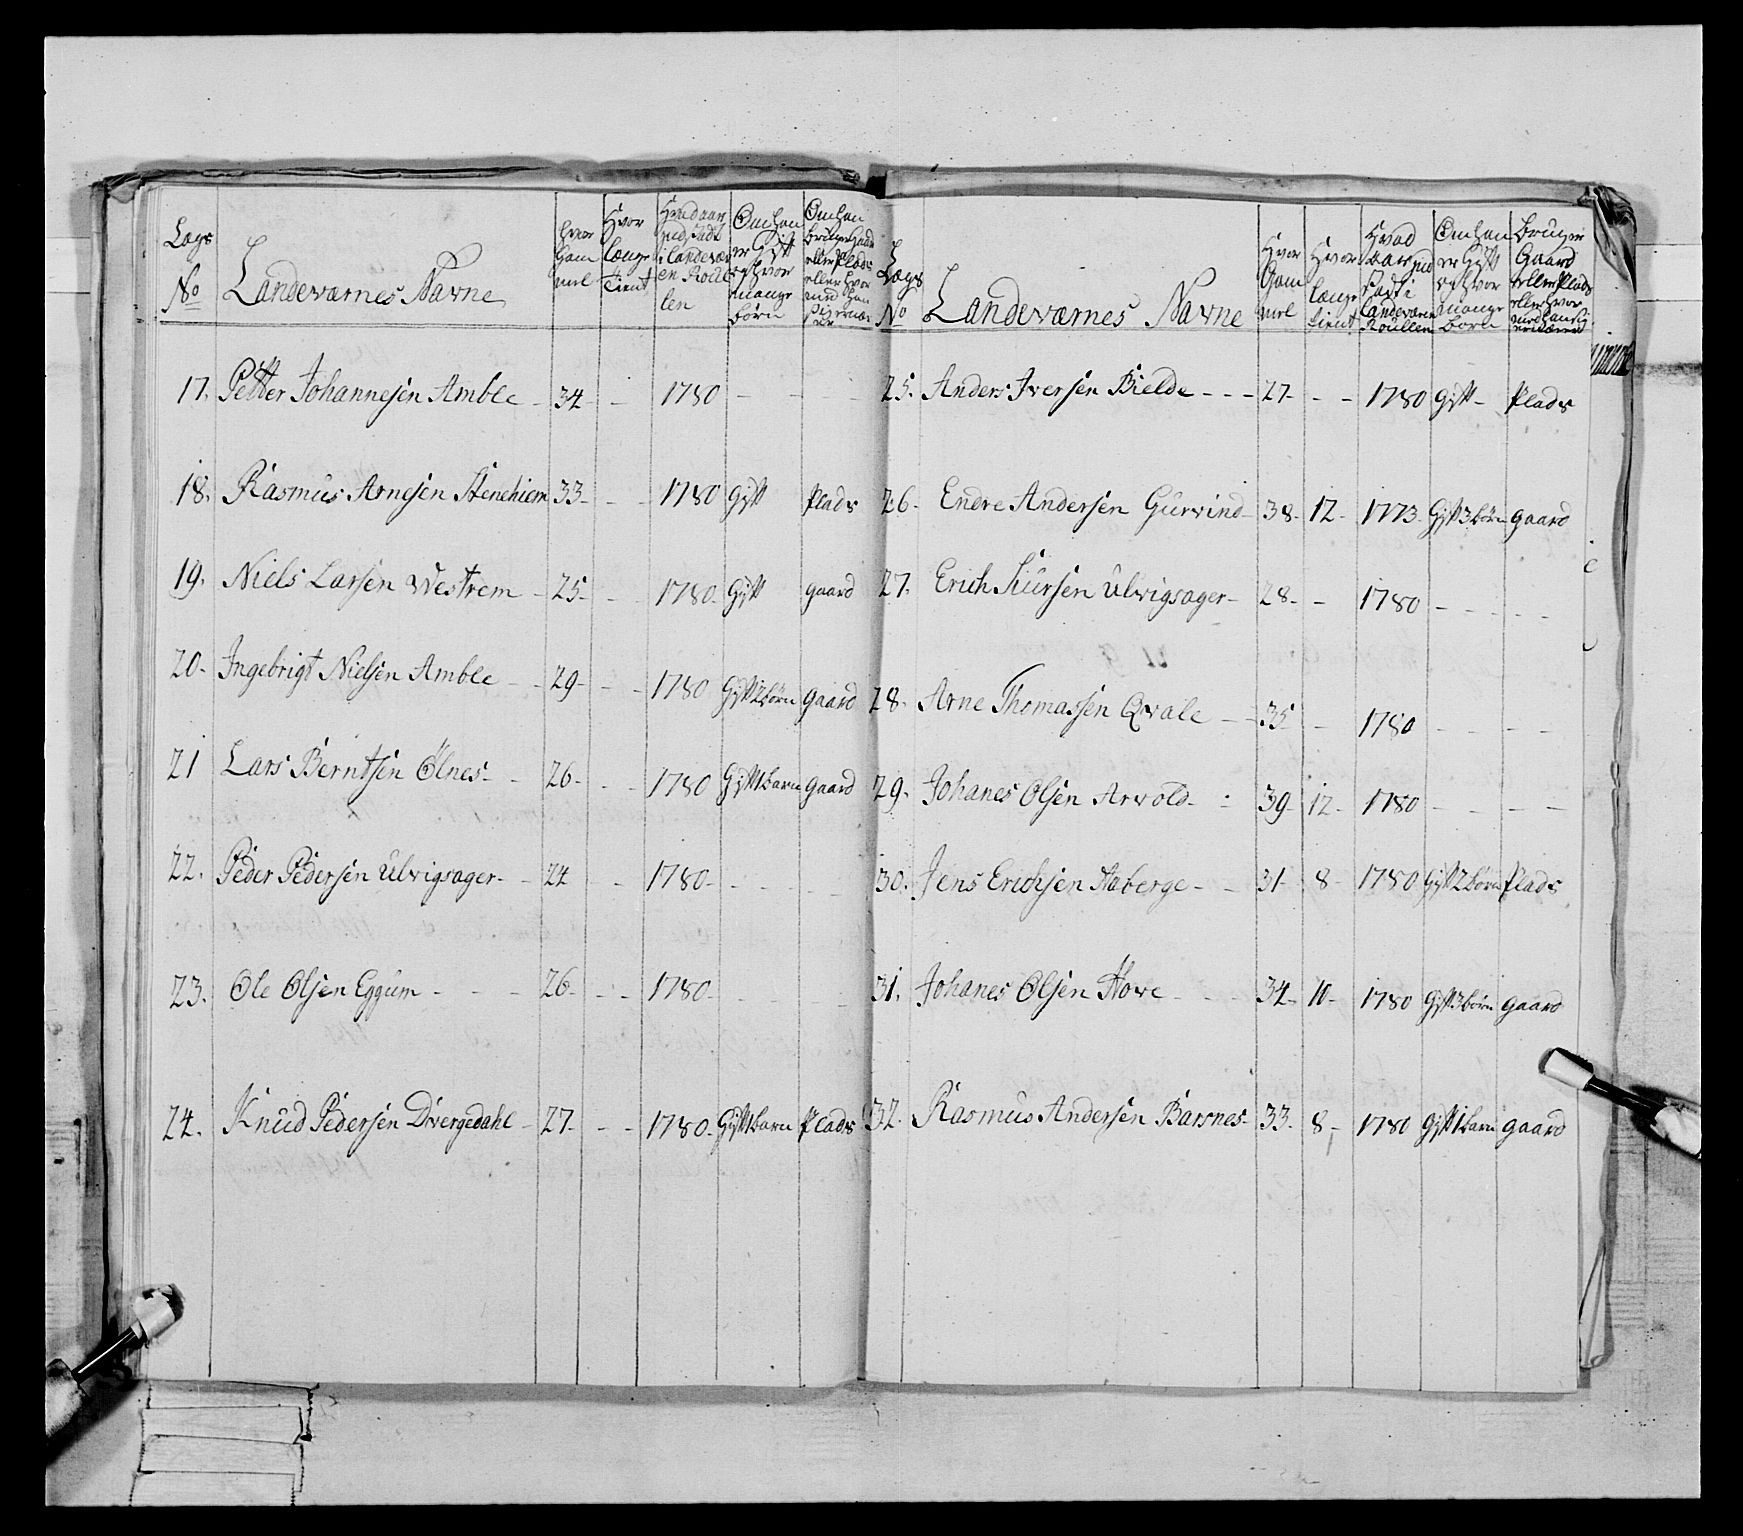 Lægs No
Landeværnes Navne
Hvor Gammel
Hvor længe Tient
Hvad aar ind sadt i Landeværnen Roullen
Om han er Gift og hvor mange børn
Om han bruger gaard eller Plads eller hvor med han sig ernærer
17. Petter Johannesen Amble - 34 - - 1780 - - -
18. Rasmus Arnesen Stenehiem 33 - - 1780 Gift Plads
19. Niels Larsen Westrem - 25 - - 1780 - Gift gaard
20. Ingebrigt Nielsen Amble - - 29 - - 1780 Gift 2 børn gaard
21 Lars Berntsen Ølnes - - 26 - - 1780 Gift 1 barn gaard
22. Peder Pedersen Ulvigsager - - 24 - - 1780 - - - - -
23. Ole Olsen Eggum - - - 26 - - 1780 - - -
24. Knud Pedersen Dvergedahl - 27 - - - 1780 - Gift 1 barn Plads
Lægs No
Landeværnes Navne
Hvor Gammel
Hvor længe tient
Hvad Aar ind sadt i Landeværn Roullen
Om han er Gift og hvor mange børn
bruger Gaard eller Plads eller hvor med han sig ernærer
25. Anders Iversen Bielde - - - 27 - - - 1780 Gift - Plads
26. Endre Andersen Gurvind - 38 - 12 - 1773. Gift 3 børn gaard
27. Erich Siursen Ulvigsager - 28 - - 1780 - - - - -
28. Arne Thomassen Qvale - - 35 - 1780 - - - -
29. Johanes Olsen Arvold - - 39 - 12 - 1780 - - - -
30. Jens Erichsen Haberge - - 31 - 8 - 1780 Gift 2 børn Plads
31. Johanes Olsen Hove - - - 34 - 10 - 1780 Gift 3 børn gaard
32. Rasmus Andersen Barsnes - 33 - 8 - 1780 Gift 1 barn gaard